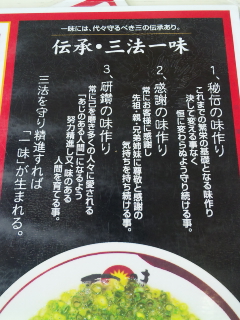 一味には、代々守るべき三の伝承あり。
伝承・三法一味
1、秘伝の味作り
これまでの繁栄の基礎となる味作り
決して変える事なく、
恒に変らぬよう守り続ける事。
2、感謝の味作り
常にお客様に感謝し
先祖・親・兄弟姉妹に尊敬と感謝の
気持ちを持ち続ける事。
3、研鑽の味作り
常に己を磨き多くの人々に愛される
「あじのある人間」になるよう
努力精進し又、味のある
人間を育てる事。
三法を守り精進すれば
「一味」が生まれる。